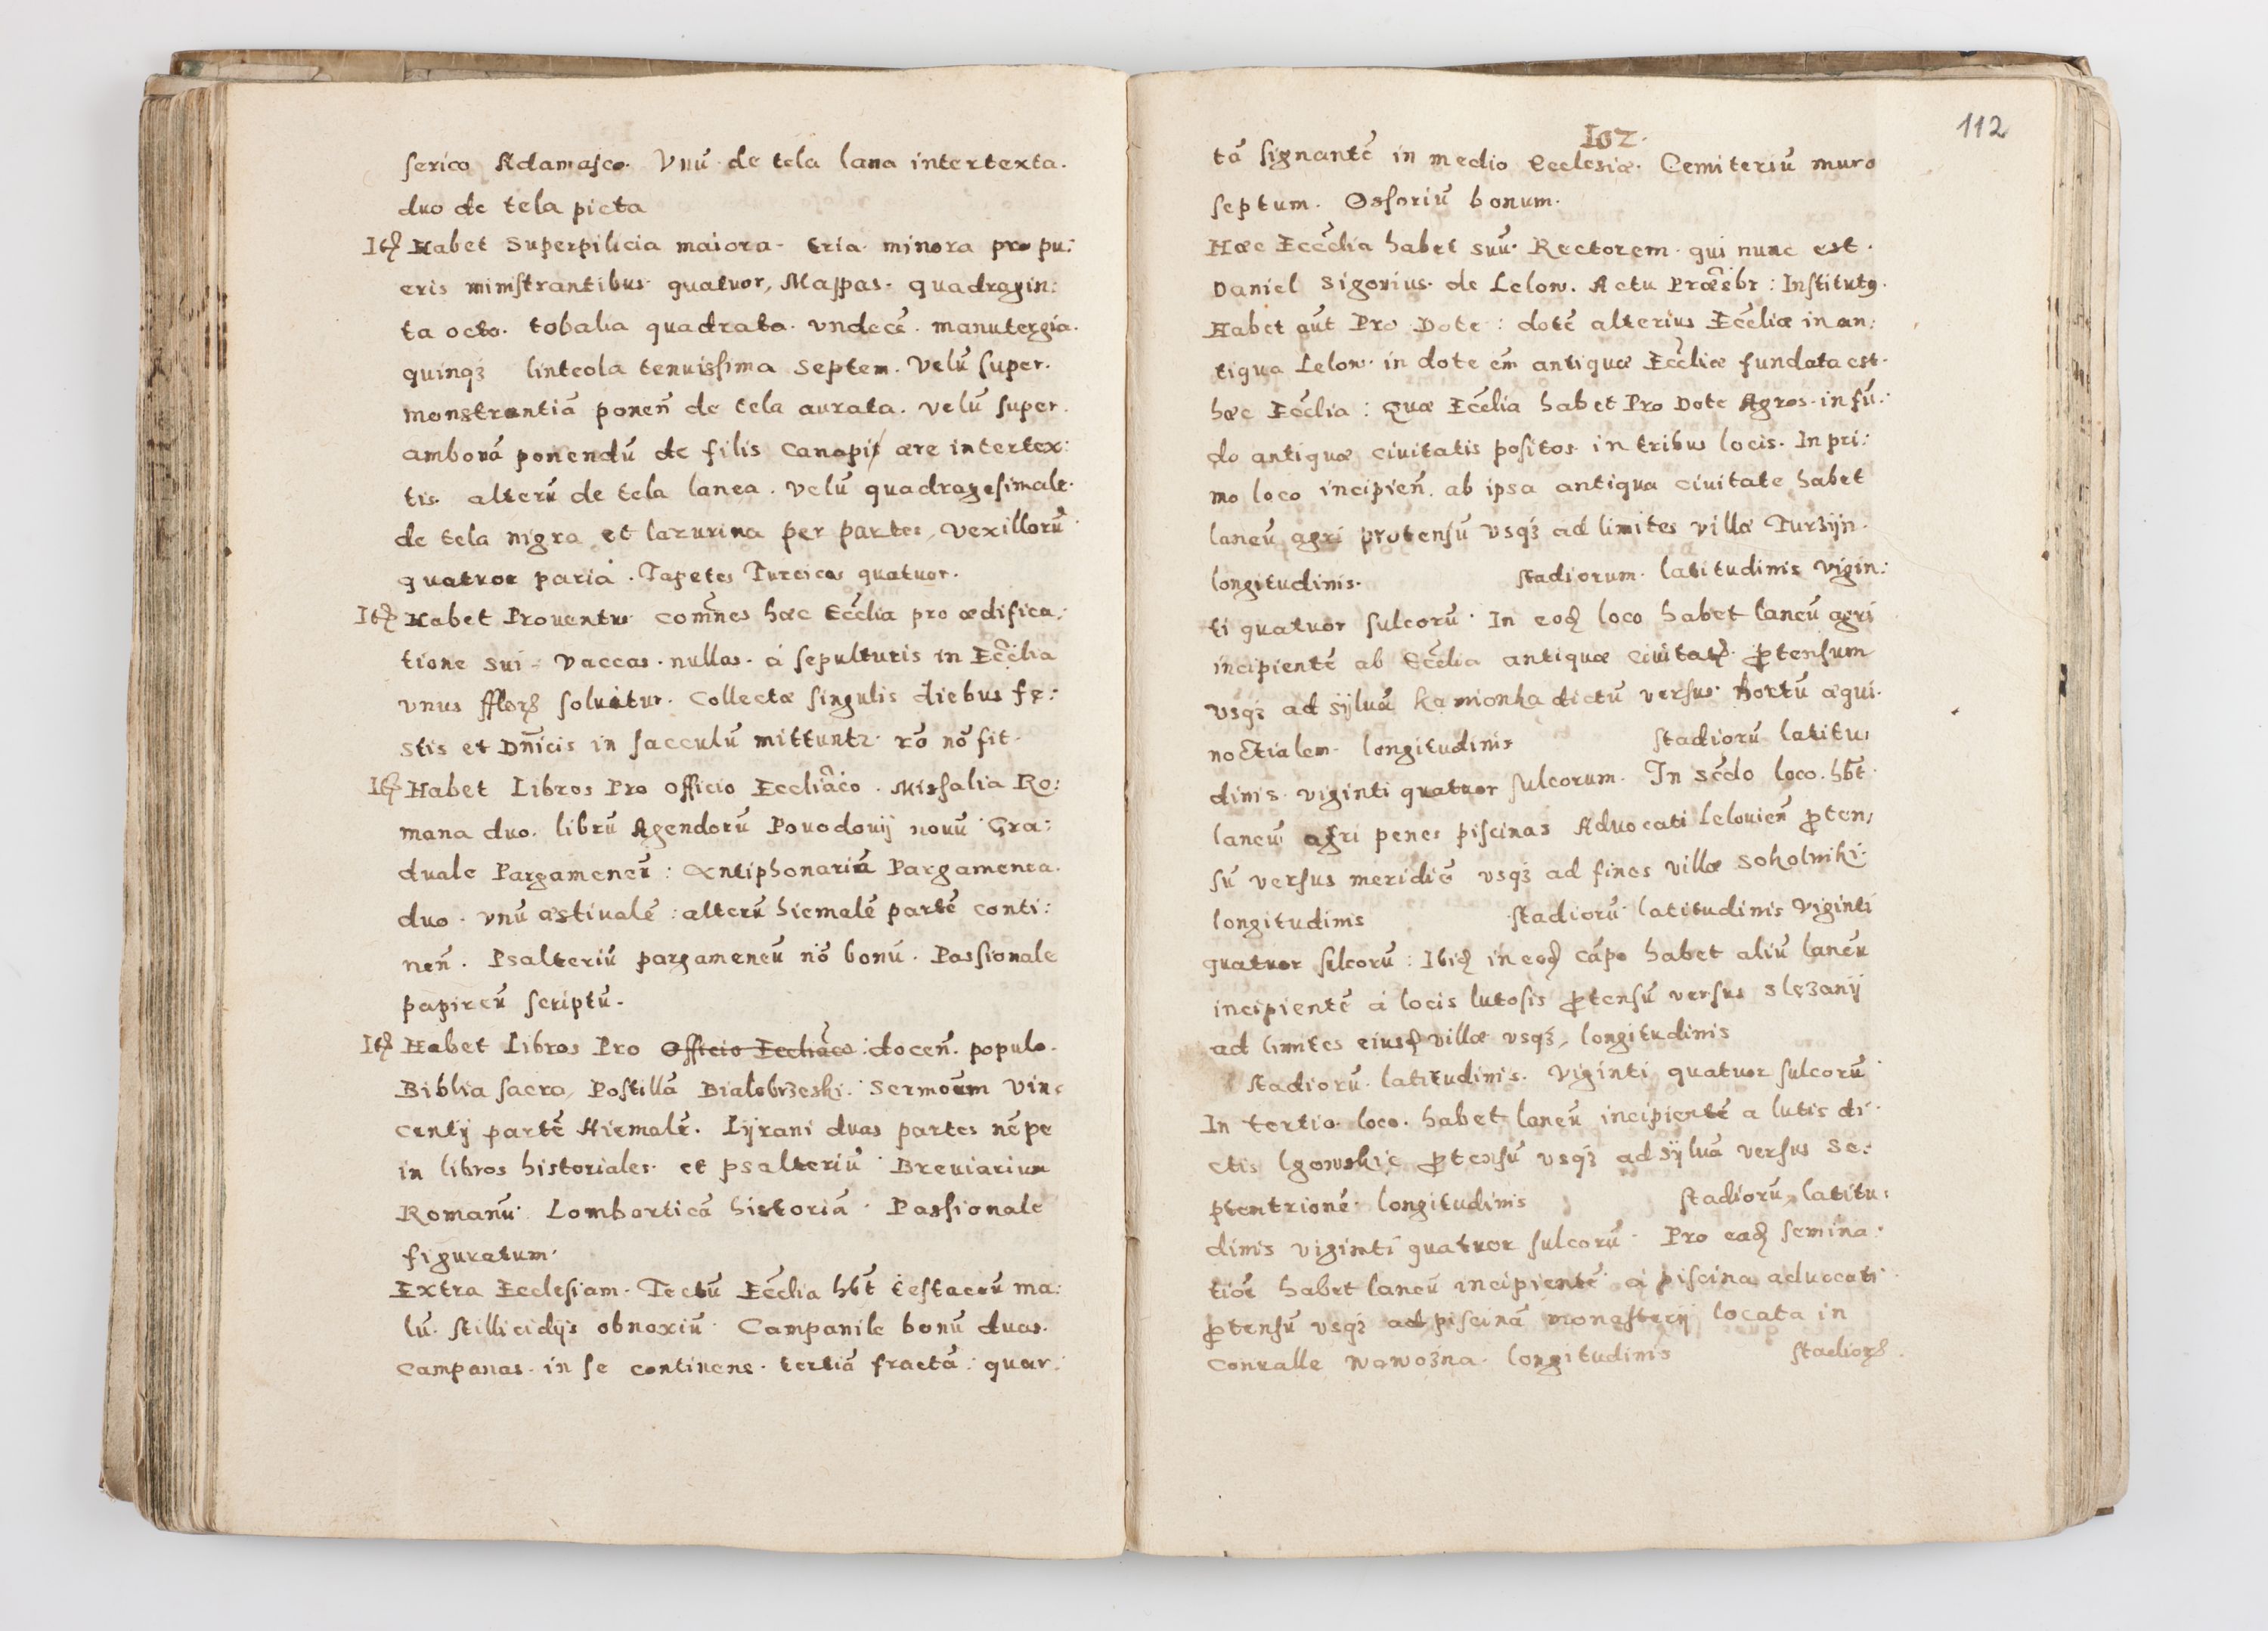 serico Adamasco. Vnũ de tela lana intertexta.
duo de tela picta
Itȩ Habet Superpilicia maiora. tria. minora pro pu:
eris ministrantibus quatuor, Mappas. quadragin:
ta octo. tobalia quadrata. vndecẽ. manutergia.
quinqȝ linteola tenuissima septem. Velũ super.
monstrantiã ponen̄ de tela aurata. velũ super.
ambonã ponendũ de filis canapis ære intertex:
tis. alterũ de tela lanea. velũ quadragesimale.
de tela nigra et lazurina per partes, vexillorũ
quatuor paria. Tapetes Turcicas quatuor.
Itȩ Habet Prouentus com̄nes hæc Ecc̄lia pro ædifica:
tione sui. Vaccas. nullas. à sepulturis in Ecc̄lia
vnus fflorȝ soluitur. Collectæ singulis diebus fę:
stis et Dn̄icis in sacculũ mittuntz. rõ nõ fit.
Itȩ Habet Libros Pro Officio Eccliãco. Missalia Ro:
mana duo. librũ Agendorũ Pouodouij nouũ Gra:
duale Pargameneũ: Antiphonariũ Pargamenea.
duo. vnũ æstiualẽ: alterũ hiemalẽ partẽ conti:
nen̄. Psalteriũ pargameneũ nõ bonũ. Passionale
papireũ scriptũ.
Itȩ Habet Libros Pro Officio Eccliãco: docen̄. populo.
Biblia sacra, Postillã Bialobrzeski. Sermoũm Vin:
centij partẽ Hiemalẽ. Lyrani duas partes nẽpe
in libros historiales. et psalteriũ Breuiarium
Romanũ. Lombarticã historiã. Passionale
figuratum.
Extra Ecclesiam. Tectũ Ecc̄lia hb̄t testaceũ ma:
lũ. stillicidijs obnoxiũ. Campanile bonũ duas.
Campanas. in se continens. tertiã fractã: quar:
102.
112
tã signantẽ in medio Ecclesiæ. Cemiteriũ muro
septum. Ossoriũ bonum.
Hæc Ecc̄lia habet suũ. Rectorem. qui nunc est.
Daniel Sigonius. de Lelow. Actu Præsbr: Institutꝯ.
Habet aũt Pro Dote: dotẽ alterius Ecc̄liæ in an:
tiqua Lelow. in dote em̃ antiquæ Ecc̄liæ fundata est.
hæc Ecc̄lia: Quæ Ecc̄lia habet Pro Dote Agros. in fũ:
do antiquæ ciuitatis positos. in tribus locis. In pri:
mo loco incipien̄. ab ipsa antiqua ciuitate habet
laneũ agri protensũ vsqȝ ad limites villæ Turzÿn.
longitudinis. stadiorum. latitudinis vigin:
ti quatuor sulcorũ. In eodȩ loco habet laneũ agri
incipientẽ ab Ecc̄lia antiquæ ciuitatȩ. ꝓtensum
vsqȝ ad sÿluã Kamionka dictũ versus. hortũ æqui.
noctialem. longitudinis stadiorũ latitu:
dinis. viginti quatuor sulcorum. In sc̄do loco. hb̄t.
laneũ agri penes piscinas Aduocati Lelouien̄ ꝓten:
sũ versus meridiẽ vsqȝ ad fines villæ Sokolniki.
longitudinis stadiorũ latitudinis Viginti
quatuor sulcorũ: Ibidȩ in eodȩ cãpo habet aliũ laneũ
incipientẽ à locis lutosis ꝓtensũ versus Slęzanÿ
ad limites eiusdȩ villæ vsqȝ, longitudinis
stadiorũ. latitudinis. viginti quatuor sulcorũ
In tertio. loco. habet laneũ incipientẽ a lutis di:
ctis Lgowskie ꝓtensũ vsqȝ ad sÿluã versus Se:
ptentrionẽ. longitudinis stadiorũ, latitu:
dinis viginti quatuor sulcorũ. Pro eadȩ semina:
tiõe habet laneũ incipientẽ à piscina aduocati
ꝓtensũ vsqȝ ad piscinã monasterij locata in
Conualle Wawozna. longitudinis stadiorȝ.